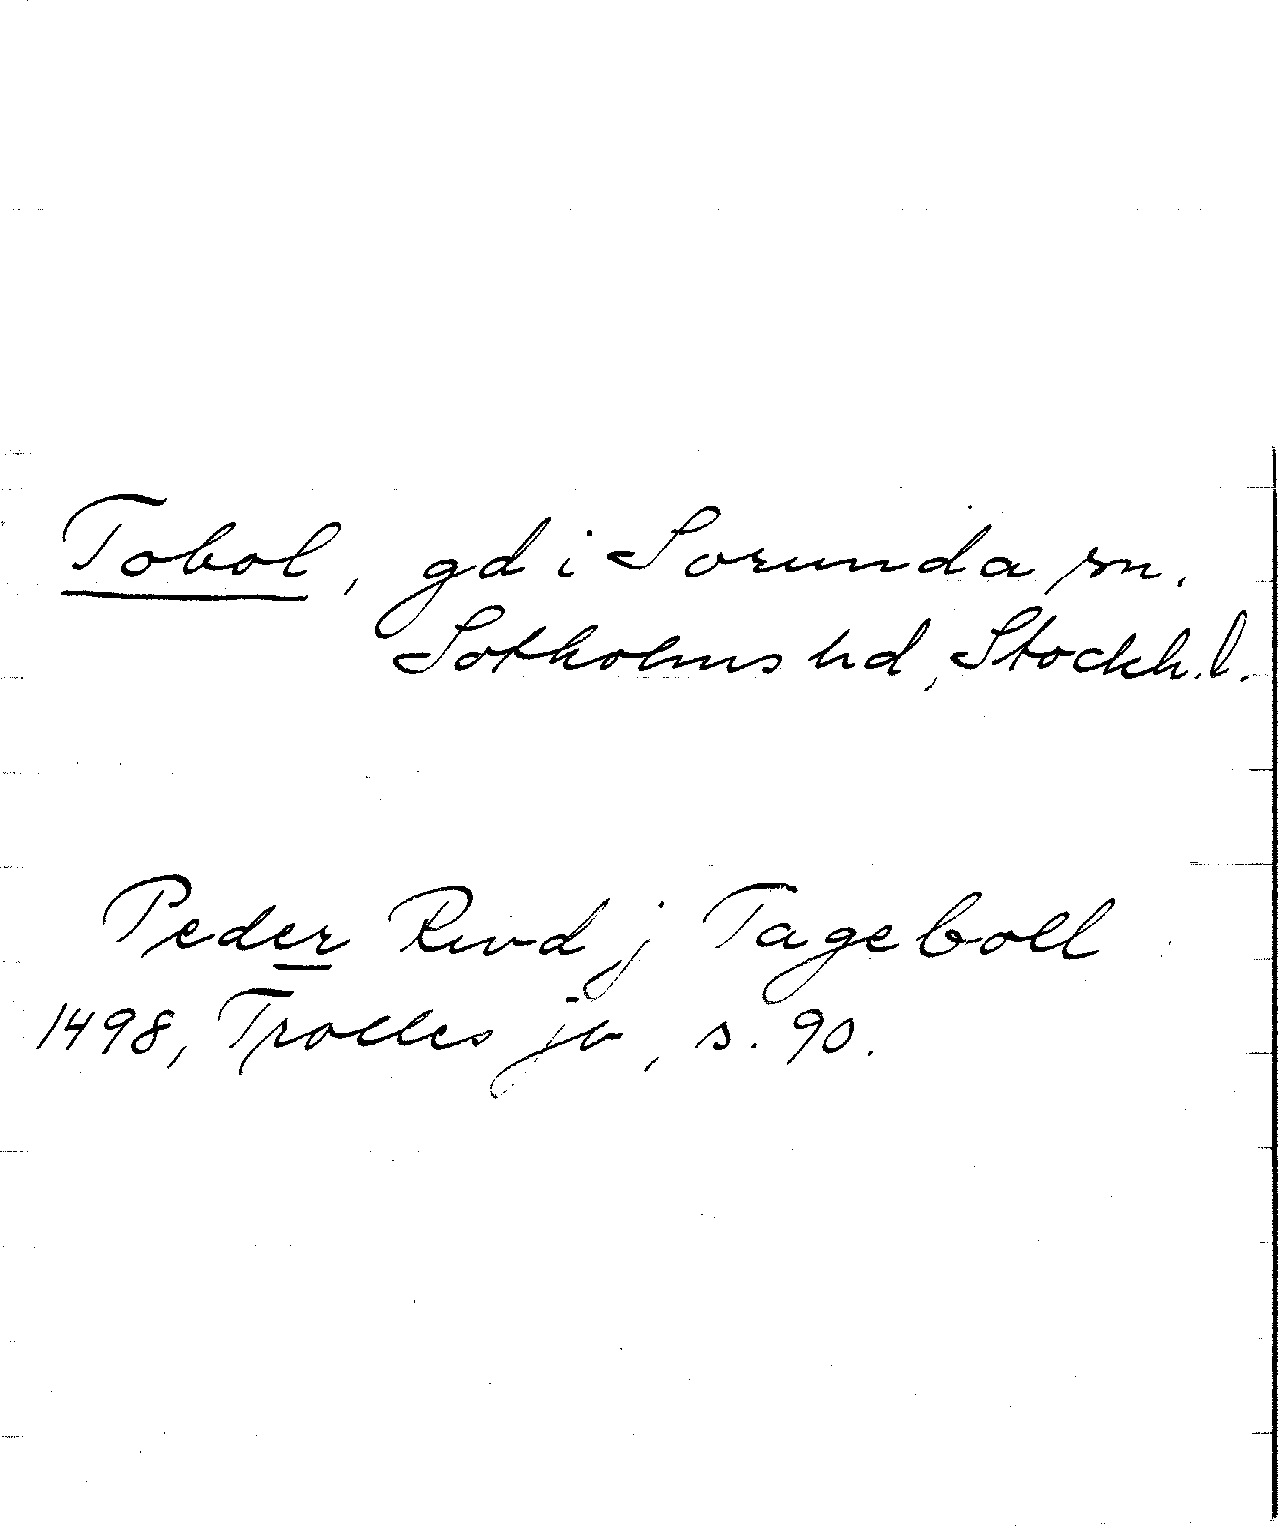 Tobol, gd i Sorunda sn.
Sotholms hd, Stockh.l.
Peder Rwd j Tageboll
1498, Trolles jb, s. 90.